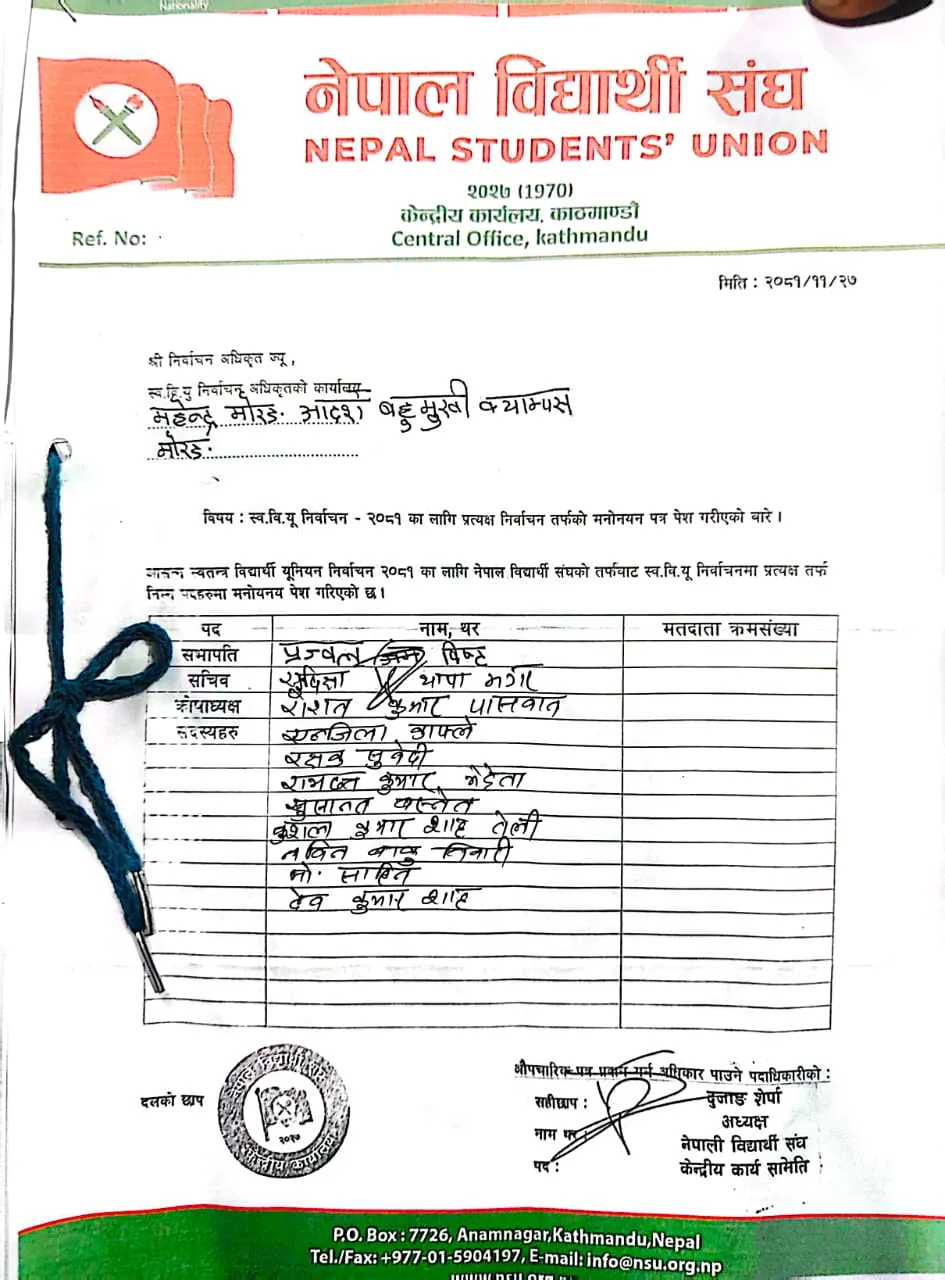 Nationality
नेपाल विद्यार्थी संघ
NEPAL STUDENTS' UNION
२०२७ (1970)
केन्द्रीय कार्यालय, काठमाण्डौ
Ref. No:
Central Office, kathmandu
मिति : २०८१/११/२७
श्री निर्वाचन अधिकृत ज्यू ,
स्व.वि.यु निर्वाचन अधिकृतको कार्यालय
महेन्द्र मोरङ आदर्श बहुमुखी क्याम्पस
मोरङ
विषय : स्व.वि.यू निर्वाचन - २०८१ का लागि प्रत्यक्ष निर्वाचन तर्फको मनोनयन पत्र पेश गरीएको बारे ।
स्वतन्त्र विद्यार्थी यूनियन निर्वाचन २०८१ का लागि नेपाल विद्यार्थी संघको तर्फवाट स्व.वि.यू निर्वाचनमा प्रत्यक्ष तर्फ
निम्न पदहरुमा मनोयनय पेश गरिएको छ ।
पद नाम, थर मतदाता क्रमसंख्या
सभापति प्रज्वल विष्ट
सचिव सुविज्ञा थापा मगर
कोषाध्यक्ष रोशन कुमार पासवान
सदस्यहरु एनजिला काफ्ले
रक्षक सुवेदी
कुमार मेहेता
बस्नेत
कुमार शाह तेली
तिवारी
मो. साहिल
देव कुमार शाह
दलको छाप
नेपाल विद्यार्थी संघ
२०२७
केन्द्रीय कार्यालय
औपचारिक पत्र प्रदान गर्न अधिकार पाउने पदाधिकारीको :
सहीछाप : दुजाङ शेर्पा
नाम थर : अध्यक्ष
नेपाली विद्यार्थी संघ
पद : केन्द्रीय कार्य समिति
P.O. Box : 7726, Anamnagar,Kathmandu,Nepal
Tel./Fax: +977-01-5904197, E-mail: info@nsu.org.np